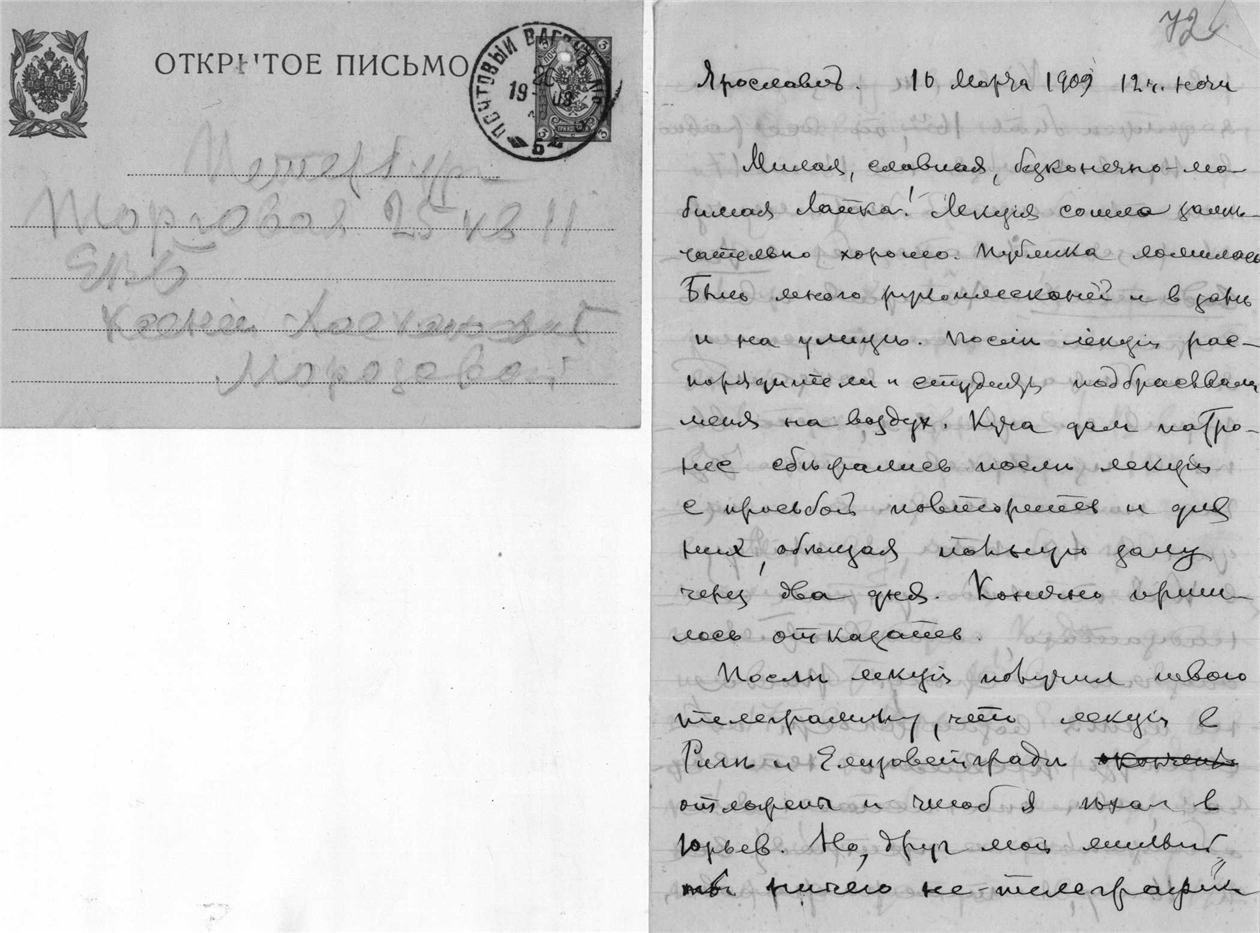 ОТКРЫТОЕ ПИСЬМО
ПОЧТОВЫЙ ВАГОНЪ №
19
5
Петербург
Торговая 25 кв 11
ЕВБ
Ксении
Морозовой
72
Ярославль. 16 Марта 1909 12 ч. ночи
Милая, славная, безконечно-лю-
бимая Лапка! Лекция сошла замѣ-
чательно хорошо. Публика ломилась
Было много рукоплесканий и в залѣ
и на улицѣ. Послѣ лекции рас-
порядители и студенты подбрасывали
меня на воздух. Куча дам патро-
несс сбѣжались послѣ лекции
с просьбой повторить и для
них, обѣщая полную залу
через два дня. Конечно приш-
лось отказать.
Послѣ лекции получил
телеграмму, что лекции в
Ригѣ и Елизаветградѣ
и чтоб я ѣхал в
Юрьев. Но, друг мой милый
ты ничего не телеграфи